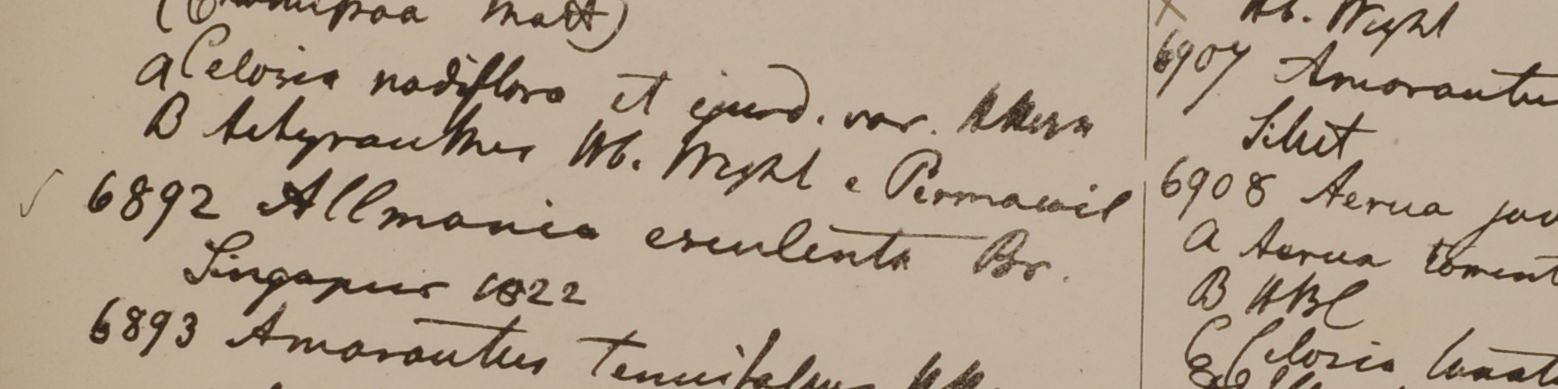 a Celosia nodiflora et ejusd. var.
B Achyranthes Hb. Wight e Permacoil
6892 Allmania esculenta Br.
Singapur 1822
6893 Amarantus tenuifolius
Hb. Wight
6907 Amarantus
Silhet
6908 Aerua jav
a Aerua toment
B HBC
C Celosia lanat